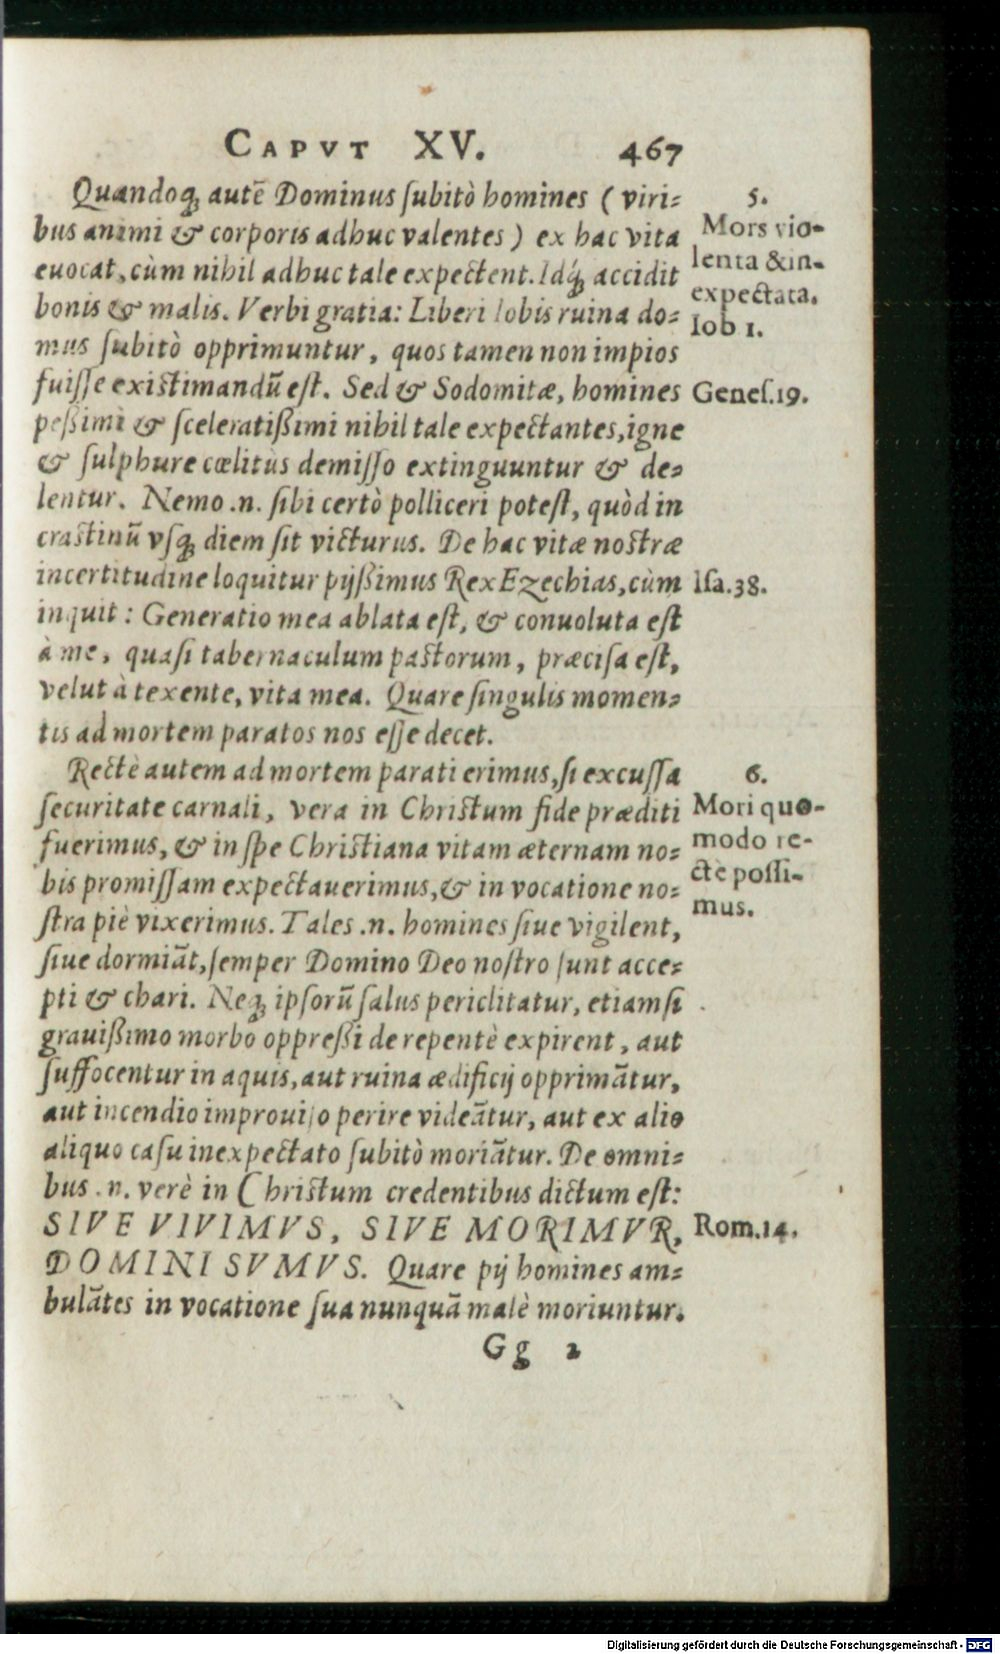 CAPVT XV. 467
Quandoq; autē Dominus ſubitò homines (viri-
bus animi & corporis adhuc valentes) ex hac vita
euocat, cùm nihil adhuc tale expectent. Idq́; accidit
bonis & malis. Verbi gratia: Liberi Iobis ruina do-
mus ſubitò opprimuntur, quos tamen non impios
fuiſſe existimandū eſt. Sed & Sodomitæ, homines
peßimi & ſceleratißimi nihil tale expectantes, igne
& ſulphure cœlitùs demiſſo extinguuntur & de-
lentur. Nemo .n. ſibi certò polliceri poteſt, quòd in
crastinū vſq; diem ſit victurus. De hac vitæ nostræ
incertitudine loquitur pijßimus Rex Ezechias, cùm
inquit: Generatio mea ablata eſt, & conuoluta eſt
à me, quaſi tabernaculum pastorum, præciſa eſt,
velut à texente, vita mea. Quare ſingulis momen-
tis ad mortem paratos nos eſſe decet.
Rectè autem ad mortem parati erimus, ſi excuſſa
ſecuritate carnali, vera in Christum fide præditi
fuerimus, & in ſpe Christiana vitam æternam no-
bis promiſſam expectauerimus, & in vocatione no-
ſtra piè vixerimus. Tales .n. homines ſiue vigilent,
ſiue dormiāt, ſemper Domino Deo noſtro ſunt acce-
pti & chari. Neq; ipſorū ſalus periclitatur, etiamſi
grauißimo morbo oppreßi de repentè expirent, aut
ſuffocentur in aquis, aut ruina ædificij opprimātur,
aut incendio improuiſo perire videātur, aut ex alio
aliquo caſu inexpectato ſubitò moriātur. De omni-
bus .n. verè in Christum credentibus dictum eſt:
SIVE VIVIMVS, SIVE MORIMVR,
DOMINI SVMVS. Quare pij homines am-
bulātes in vocatione ſua nunquā malè moriuntur.
Gg 2
5.
Mors vio-
lenta & in-
expectata.
Iob 1.
Geneſ. 19.
Iſa. 38.
6.
Mori quo-
modo re-
ctè poſſi-
mus.
Rom. 14.
Digitalisierung gefördert durch die Deutsche Forschungsgemeinschaft - DFG